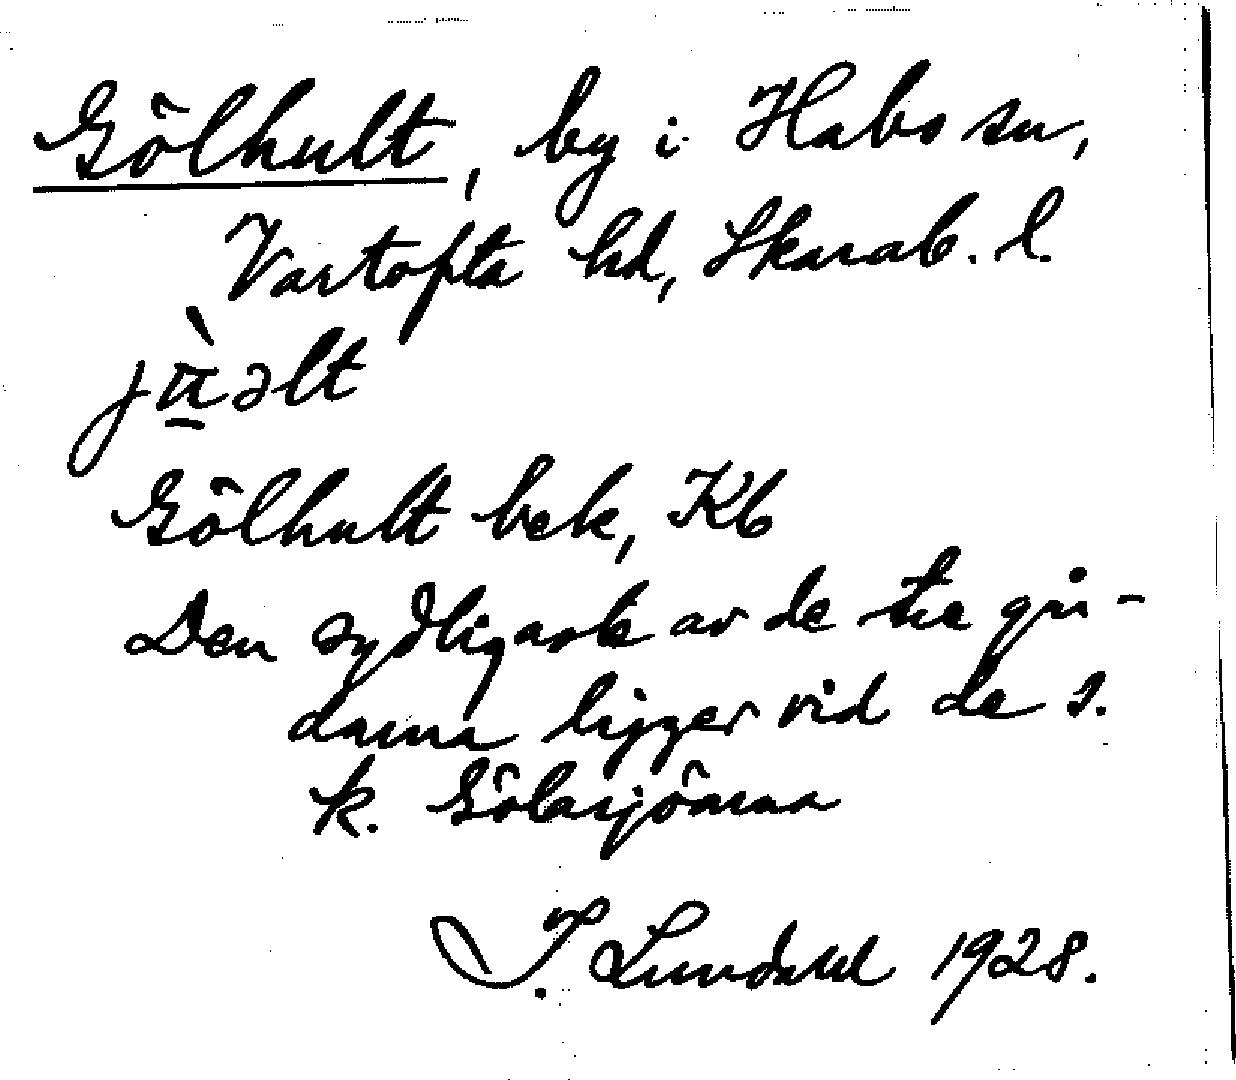 Gölhult, by i Habo sn,
Vartofta hd, Skarab. l.
Gölhult bek, Kb
Den sydligaste av de tre går-
darna ligger vid de s.
k. Gölasjöarna
I. Lundahl 1928.